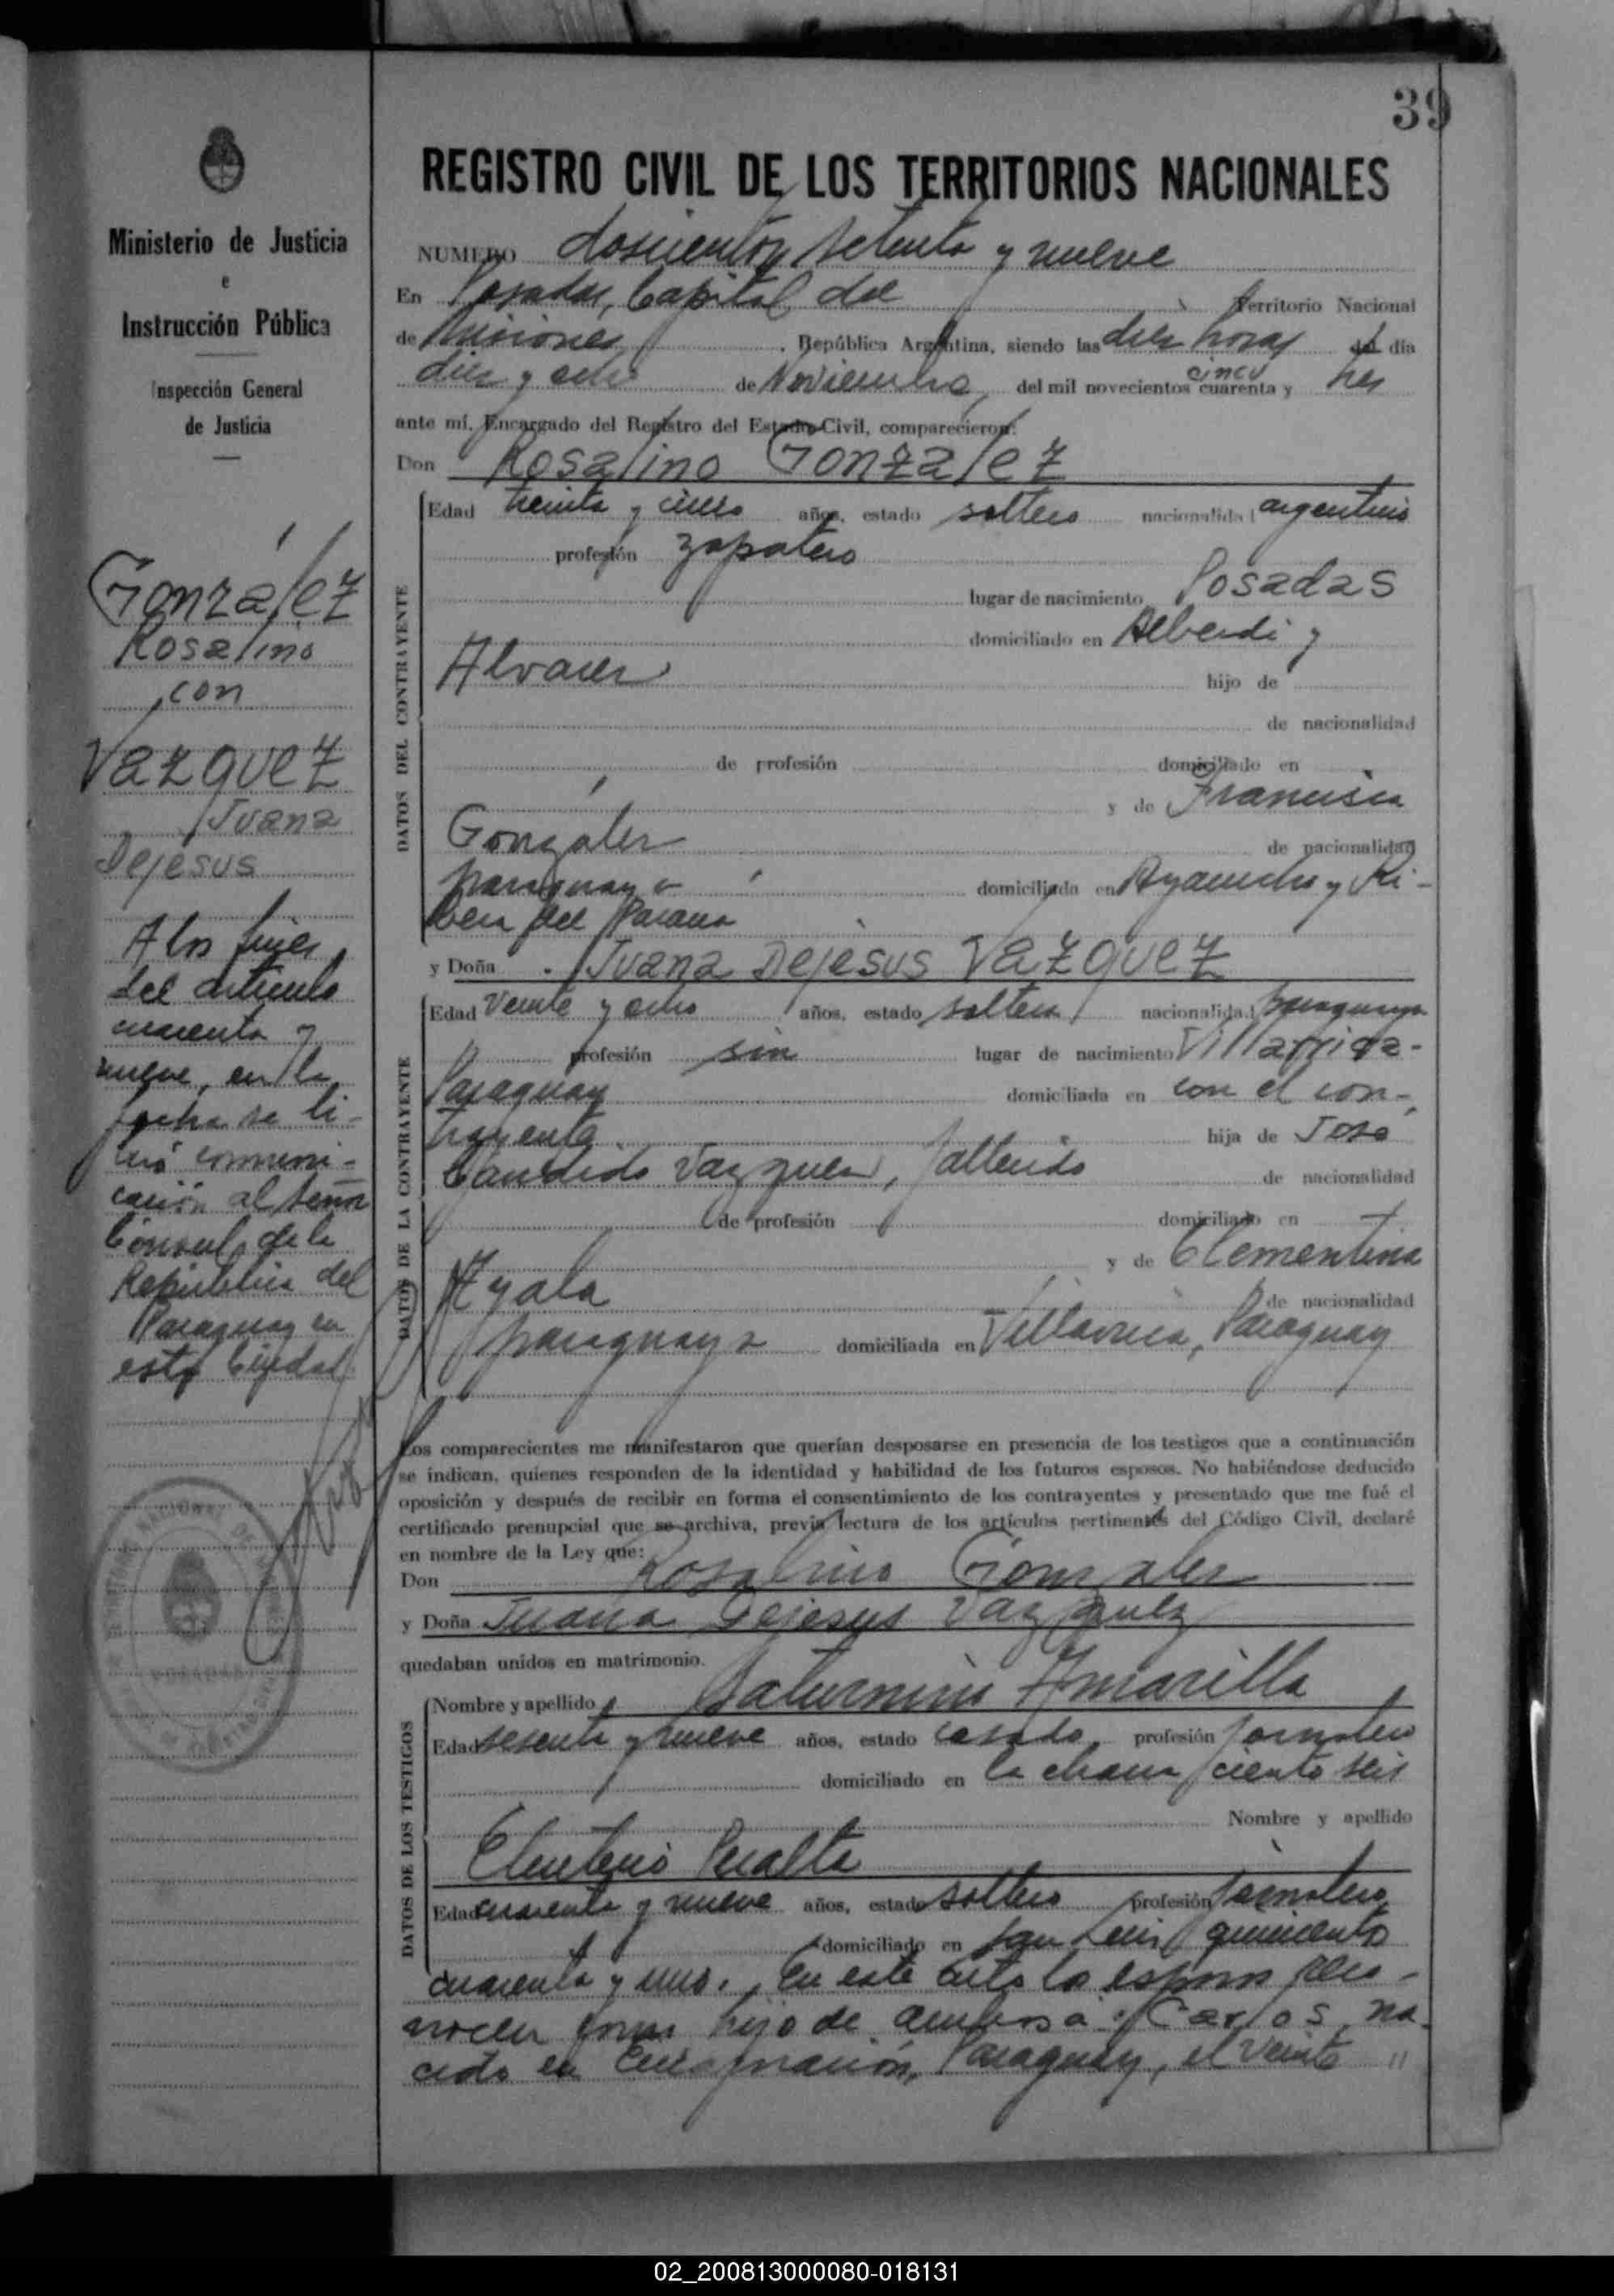 39
Ministerio de Justicia
e
Instrucción Pública
Inspección General
de Justicia
González
Rosalino
con
Vazquez
Juana
Dejesus
A los fines
del artículo
cuarenta y
nueve, en la
fecha se li-
bró comuni-
cación al señor
Cónsul de la
República del
Paraguay en
esta Ciudad
REGISTRO CIVIL DE LOS TERRITORIOS NACIONALES
NUMERO doscientos setenta y nueve
En Posadas, Capital del Territorio Nacional
de Misiones, República Argentina, siendo las diez horas del día
diez y ocho de Noviembre, del mil novecientos cinco cuarenta y tres
ante mí, Encargado del Registro del Estado Civil, comparecieron:
Don Rosalino González
DATOS DEL CONTRAYENTE
Edad treinta y cinco años, estado soltero nacionalidad argentino
profesión zapatero
lugar de nacimiento Posadas
domiciliado en Alberdi y
Alvarez hijo de
de nacionalidad
de profesión domiciliado en
y de Francisca
González de nacionalidad
paraguaya domiciliada en Ayacucho y Ri-
bera del Paraná
y Doña Juana Dejesus Vazquez
DATOS DE LA CONTRAYENTE
Edad veinte y ocho años, estado soltera nacionalidad paraguaya
profesión sin lugar de nacimiento Villarrica-
Paraguay domiciliada en con el con-
trayente hija de José
Candido Vazquez, fallecido de nacionalidad
de profesión domiciliado en
y de Clementina
Ayala de nacionalidad
paraguaya domiciliada en Villarrica, Paraguay
Los comparecientes me manifestaron que querían desposarse en presencia de los testigos que a continuación
se indican, quienes responden de la identidad y habilidad de los futuros esposos. No habiéndose deducido
oposición y después de recibir en forma el consentimiento de los contrayentes y presentado que me fué el
certificado prenupcial que se archiva, previa lectura de los artículos pertinentes del Código Civil, declaré
en nombre de la Ley que:
Don Rosalino Gonzalez
y Doña Juana Dejesus Vazquez
quedaban unidos en matrimonio.
DATOS DE LOS TESTIGOS
Nombre y apellido Saturnino Amarilla
Edad sesenta y nueve años, estado casado, profesión jornalero
domiciliado en la chacra ciento seis
Nombre y apellido
Eleuterio Peralta
Edad cuarenta y nueve años, estado soltero profesión jornalero
domiciliado en San Luis quinientos
cuarenta y uno. En este acto los esposos reco-
nocen como hijo de ambos a: Carlos, na-
cido en Encarnación, Paraguay, el veinte "
POSADAS
02_200813000080-018131